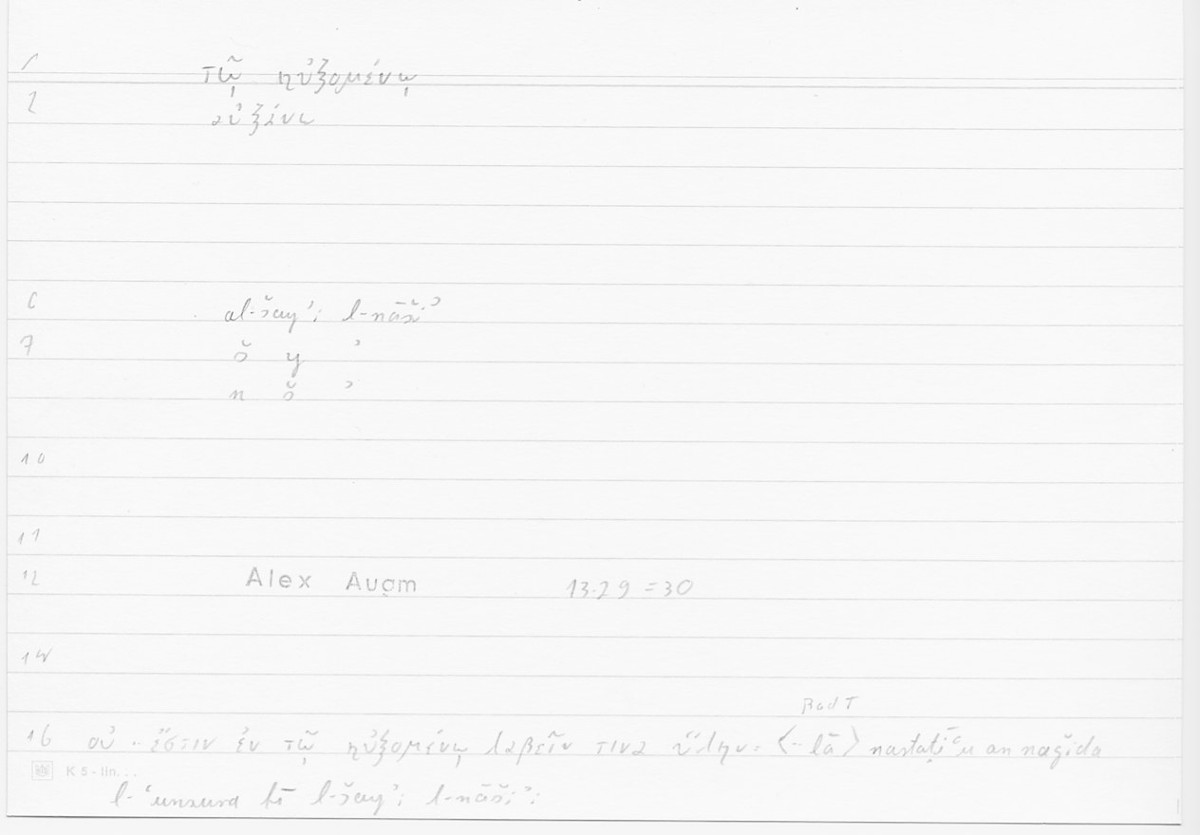 1 τῷ ηὐξομένῳ
2 αὐξάνω
6 al-šayʾi l-nāšiʾ
7 š y ʾ
n š ʾ
10
11
12 Alex Auom 13.29 = 30
14
Bad T
16 οὐ .. ἔστιν ἐν τῷ ηὐξομένῳ λαβεῖν τινα ὕλην: <- lā> nastaṭīʿu an nağida
K 5 - lin. . .
l-ʿunṣura fī l-šayʾi l-nāšiʾi: